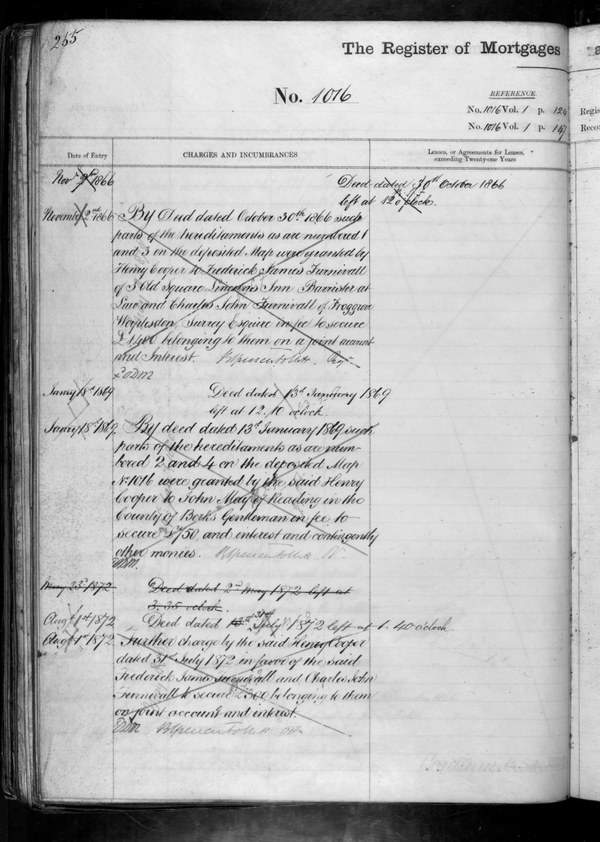 255
The Register of Mortgages
No. 1016
REFERENCE.
No. 1016 Vol. 1 p. 124
No. 1016 Vol. 1 p. 147
Regis
Reco
Date of Entry
CHARGES AND INCUMBRANCES
Leases, or Agreements for Leases,
exceeding Twenty-one Years
Novr 2nd 1866
Deed dated 30th October 1866
left at 12 o'clock.
November 2nd 1866
By Deed dated October 30th 1866 such
parts of the hereditaments as are numbered 1
and 3 on the deposited Map were granted by
Henry Cooper to Frederick James Furnivall
of 3 Old Square Lincolns Inn Barrister at
Law and Charles John Furnivall of Froggrove
Worplesdon, Surrey Esquire in fee to secure
£1400 belonging to them on a joint account
and Interest.
Janry 18th 1869
Deed dated 13th January 1869
left at 12.10 oclock
Janry 18th 1869
By deed dated 13th January 1869 such
parts of the hereditaments as are num-
bered 2 and 4 on the deposited Map
No 1016 were granted by the said Henry
Cooper to John May of Reading in the
County of Berks Gentleman in fee to
secure £750 and interest and contingently
other monies.
May 23rd 1872
Deed dated 2nd May 1872 left at
3.35 oclock.
Augt 1st 1872
Deed dated 31st July 1872 left at 1.40 o'clock
Augt 1st 1872
Further charge by the said Henry Cooper
dated 31st July 1872 in favor of the said
Frederick James Furnivall and Charles John
Furnivall to secure £500 belonging to them
on joint account and interest.